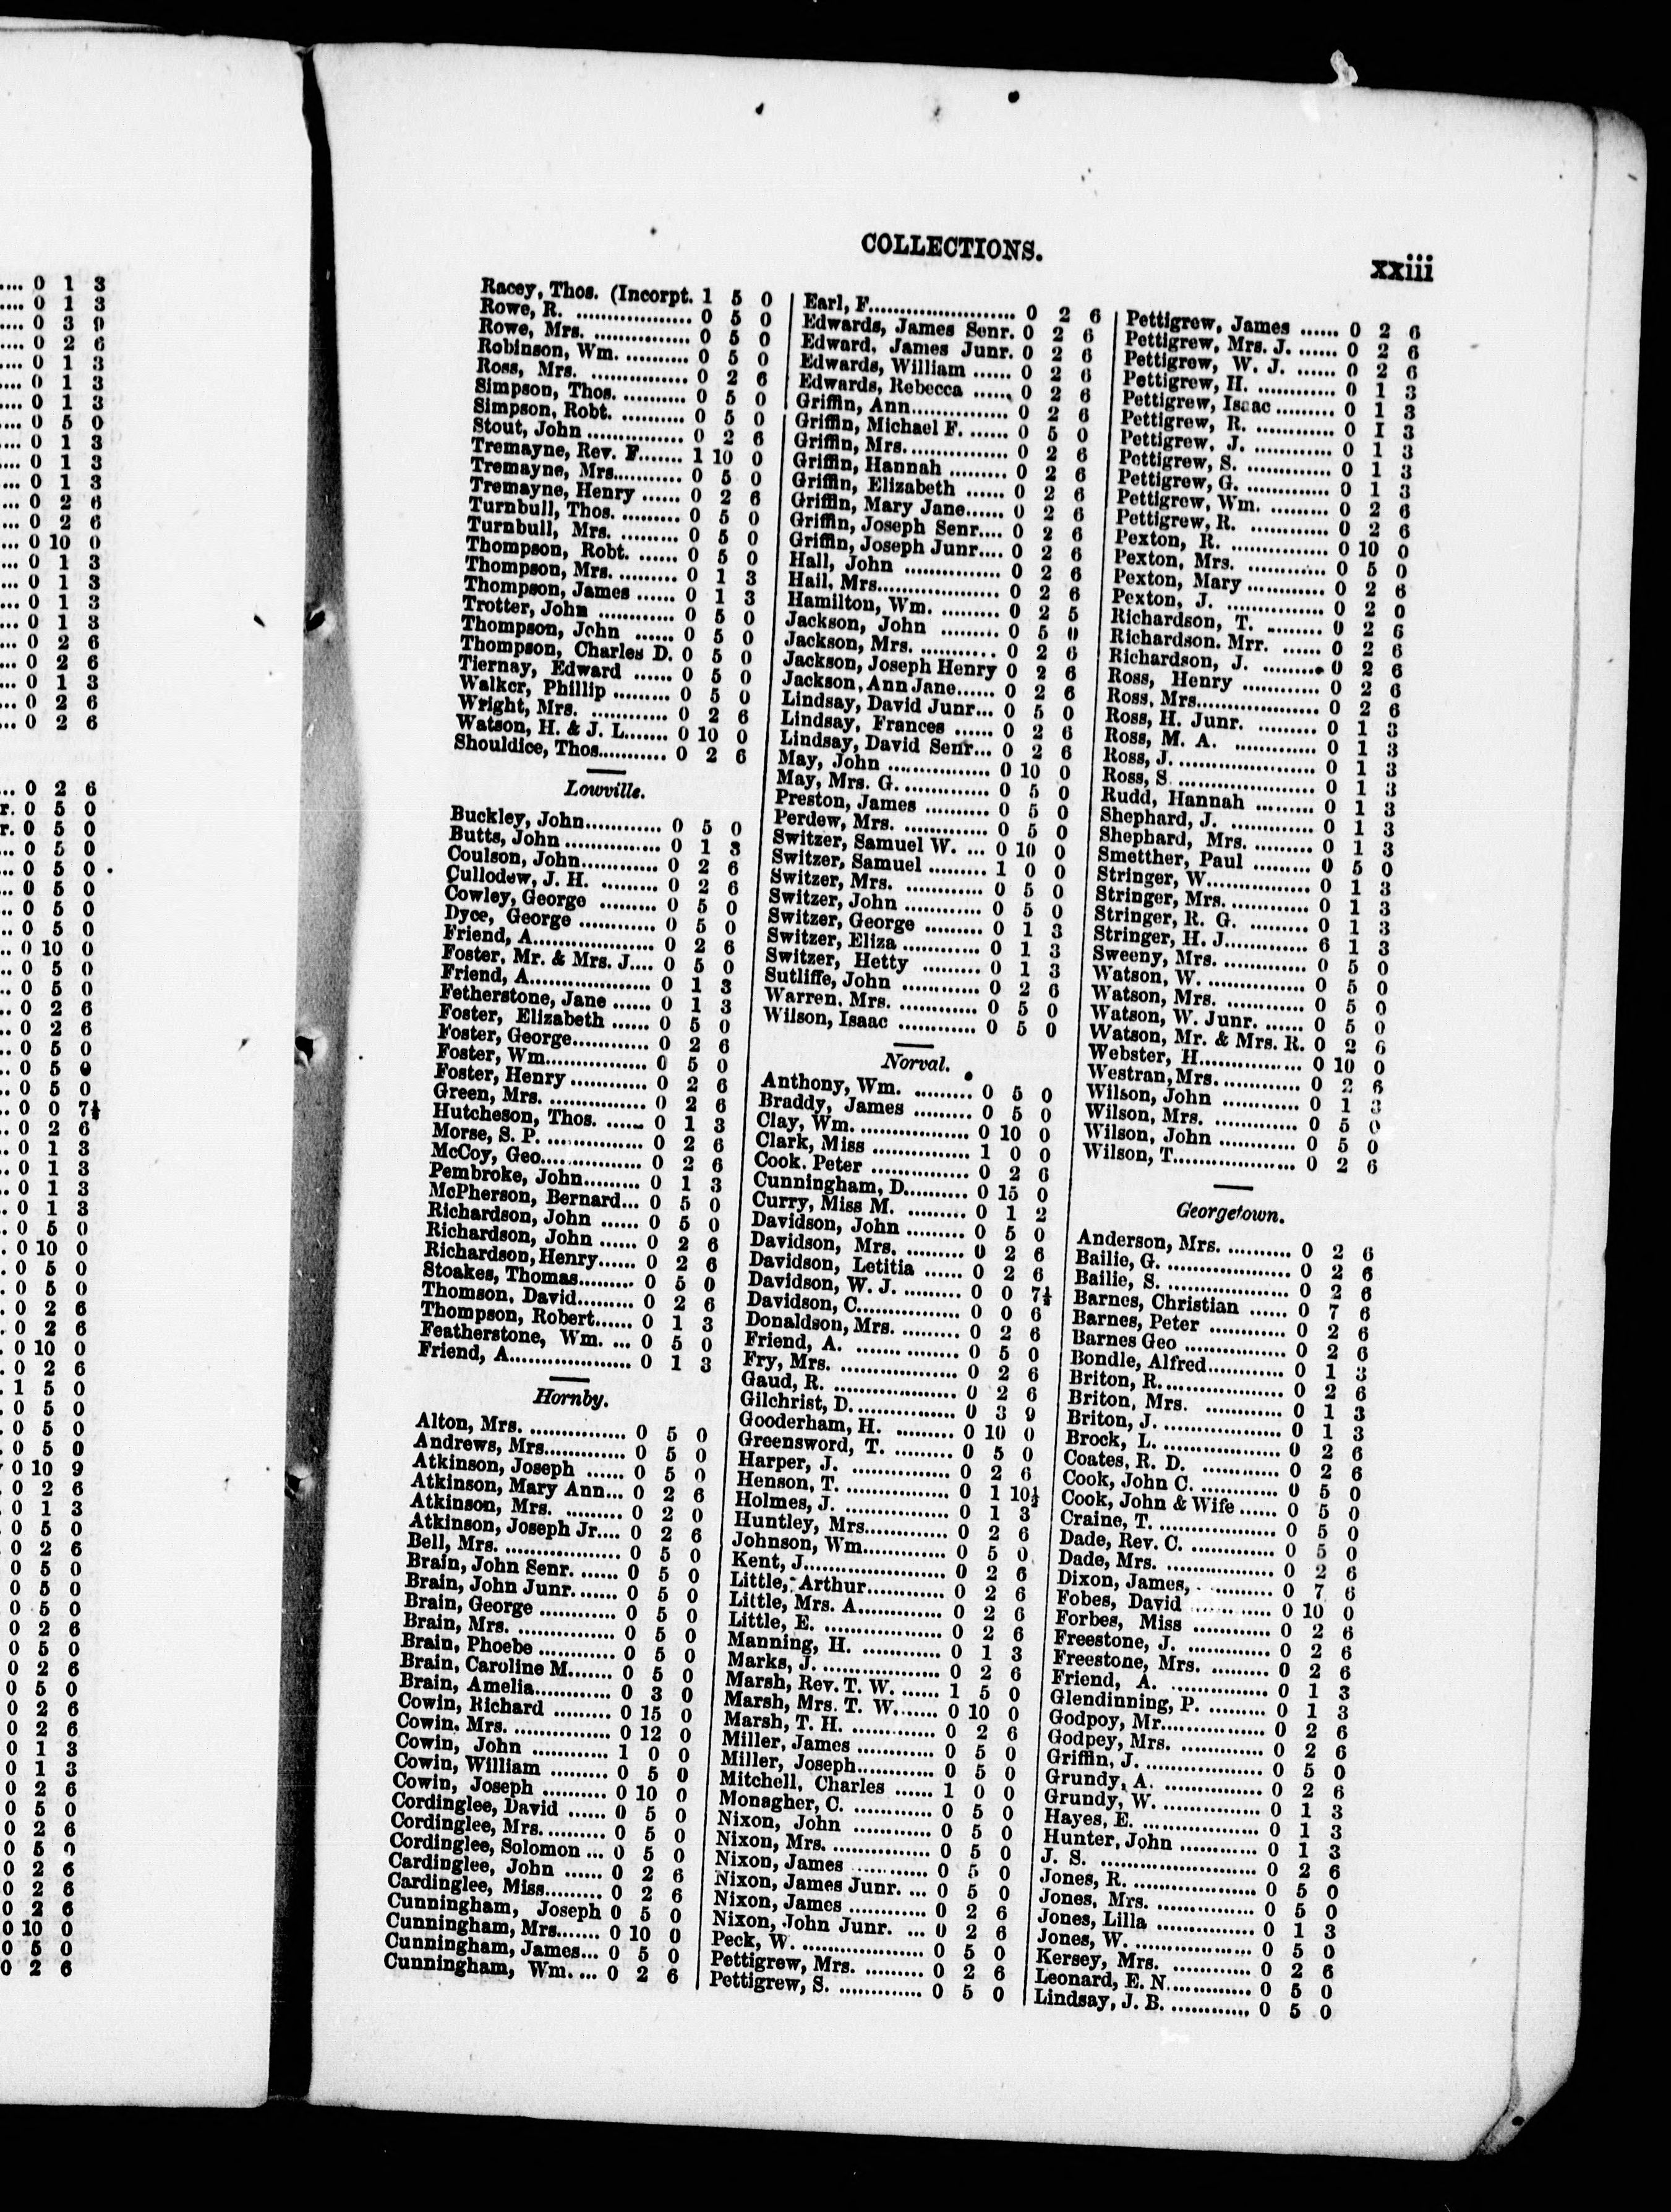 .... 0 1 3
.... 0 1 3
.... 0 3 9
.... 0 2 6
.... 0 1 3
.... 0 1 3
.... 0 1 3
.... 0 5 0
.... 0 1 3
.... 0 1 3
.... 0 1 3
... 0 2 6
... 0 2 6
... 0 10 0
... 0 1 3
... 0 1 3
... 0 1 3
... 0 1 3
... 0 2 6
... 0 2 6
... 0 1 3
... 0 2 6
... 0 2 6
... 0 2 6
r. 0 5 0
r. 0 5 0
... 0 5 0
... 0 5 0
... 0 5 0
... 0 5 0
... 0 5 0
.. 0 10 0
.. 0 5 0
.. 0 5 0
.. 0 2 6
.. 0 2 6
.. 0 5 0
.. 0 5 0
.. 0 5 0
.. 0 0 7½
.. 0 2 6
.. 0 1 3
.. 0 1 3
.. 0 1 3
.. 0 1 3
. 0 5 0
. 0 10 0
. 0 5 0
. 0 5 0
. 0 2 6
. 0 2 6
. 0 10 0
. 0 2 6
. 1 5 0
. 0 5 0
. 0 5 0
. 0 5 0
0 10 9
. 0 2 6
0 1 3
0 5 0
0 2 6
0 5 0
0 5 0
0 5 0
0 2 6
0 5 0
0 2 6
0 5 0
0 2 6
0 2 6
0 1 3
0 1 3
0 2 6
0 5 0
0 2 6
0 5 0
0 2 6
0 2 6
0 2 6
0 10 0
0 5 0
0 2 6
COLLECTIONS.
xxiii
Racey, Thos. (Incorpt. 1 5 0
Rowe, R. .................. 0 5 0
Rowe, Mrs. ............... 0 5 0
Robinson, Wm. .......... 0 5 0
Ross, Mrs. ............... 0 2 6
Simpson, Thos. .......... 0 5 0
Simpson, Robt. .......... 0 5 0
Stout, John ............... 0 2 6
Tremayne, Rev. F....... 1 10 0
Tremayne, Mrs........... 0 5 0
Tremayne, Henry ...... 0 2 6
Turnbull, Thos. .......... 0 5 0
Turnbull, Mrs. .......... 0 5 0
Thompson, Robt. ...... 0 5 0
Thompson, Mrs. .......... 0 1 3
Thompson, James ...... 0 1 3
Trotter, John ............ 0 5 0
Thompson, John ...... 0 5 0
Thompson, Charles D. 0 5 0
Tiernay, Edward ...... 0 5 0
Walker, Phillip ......... 0 5 0
Wright, Mrs. ............ 0 2 6
Watson, H. & J. L....... 0 10 0
Shouldice, Thos........... 0 2 6
Lowville.
Buckley, John............ 0 5 0
Butts, John ............... 0 1 3
Coulson, John............ 0 2 6
Cullodew, J. H. ......... 0 2 6
Cowley, George ......... 0 5 0
Dyce, George ............ 0 5 0
Friend, A................... 0 2 6
Foster, Mr. & Mrs. J.... 0 5 0
Friend, A................... 0 1 3
Fetherstone, Jane ...... 0 1 3
Foster, Elizabeth ...... 0 5 0
Foster, George............ 0 2 6
Foster, Wm................ 0 5 0
Foster, Henry ............ 0 2 6
Green, Mrs. ............... 0 2 6
Hutcheson, Thos. ...... 0 1 3
Morse, S. P. ............... 0 2 6
McCoy, Geo................ 0 2 6
Pembroke, John......... 0 1 3
McPherson, Bernard... 0 5 0
Richardson, John ...... 0 5 0
Richardson, John ...... 0 2 6
Richardson, Henry...... 0 2 6
Stoakes, Thomas......... 0 5 0
Thomson, David......... 0 2 6
Thompson, Robert...... 0 1 3
Featherstone, Wm. ... 0 5 0
Friend, A................... 0 1 3
Hornby.
Alton, Mrs. ............... 0 5 0
Andrews, Mrs............. 0 5 0
Atkinson, Joseph ...... 0 5 0
Atkinson, Mary Ann... 0 2 6
Atkinson, Mrs. ......... 0 2 0
Atkinson, Joseph Jr.... 0 2 6
Bell, Mrs. .................. 0 5 0
Brain, John Senr. ...... 0 5 0
Brain, John Junr. ...... 0 5 0
Brain, George ............ 0 5 0
Brain, Mrs. ............... 0 5 0
Brain, Phoebe ............ 0 5 0
Brain, Caroline M....... 0 5 0
Brain, Amelia............ 0 3 0
Cowin, Richard ......... 0 15 0
Cowin, Mrs. ............... 0 12 0
Cowin, John ............ 1 0 0
Cowin, William ......... 0 5 0
Cowin, Joseph .......... 0 10 0
Cordinglee, David ...... 0 5 0
Cordinglee, Mrs. ......... 0 5 0
Cordinglee, Solomon ... 0 5 0
Cardinglee, John ...... 0 2 6
Cardinglee, Miss......... 0 2 6
Cunningham, Joseph 0 5 0
Cunningham, Mrs....... 0 10 0
Cunningham, James... 0 5 0
Cunningham, Wm. ... 0 2 6
Earl, F....................... 0 2 6
Edwards, James Senr. 0 2 6
Edward, James Junr. 0 2 6
Edwards, William ...... 0 2 6
Edwards, Rebecca ...... 0 2 6
Griffin, Ann............... 0 2 6
Griffin, Michael F. ...... 0 5 0
Griffin, Mrs................ 0 2 6
Griffin, Hannah ......... 0 2 6
Griffin, Elizabeth ...... 0 2 6
Griffin, Mary Jane...... 0 2 6
Griffin, Joseph Senr.... 0 2 6
Griffin, Joseph Junr.... 0 2 6
Hall, John ............... 0 2 6
Hail, Mrs................... 0 2 6
Hamilton, Wm. ......... 0 2 5
Jackson, John ......... 0 5 0
Jackson, Mrs. ............ 0 2 6
Jackson, Joseph Henry 0 2 6
Jackson, Ann Jane...... 0 2 6
Lindsay, David Junr... 0 5 0
Lindsay, Frances ...... 0 2 6
Lindsay, David Senr... 0 2 6
May, John ................ 0 10 0
May, Mrs. G. ............. 0 5 0
Preston, James .......... 0 5 0
Perdew, Mrs. ............. 0 5 0
Switzer, Samuel W. ... 0 10 0
Switzer, Samuel ......... 1 0 0
Switzer, Mrs. ............ 0 5 0
Switzer, John ............ 0 5 0
Switzer, George ......... 0 1 3
Switzer, Eliza ............ 0 1 3
Switzer, Hetty ......... 0 1 3
Sutliffe, John ............ 0 2 6
Warren, Mrs. ............ 0 5 0
Wilson, Isaac ............ 0 5 0
Norval.
Anthony, Wm. ......... 0 5 0
Braddy, James ......... 0 5 0
Clay, Wm. ................. 0 10 0
Clark, Miss ............... 1 0 0
Cook. Peter ............... 0 2 6
Cunningham, D.......... 0 15 0
Curry, Miss M. ......... 0 1 2
Davidson, John ......... 0 5 0
Davidson, Mrs. ......... 0 2 6
Davidson, Letitia ...... 0 2 6
Davidson, W. J. ......... 0 0 7½
Davidson, C................ 0 0 6
Donaldson, Mrs. ......... 0 2 6
Friend, A. ................ 0 5 0
Fry, Mrs. .................. 0 2 6
Gaud, R. ................... 0 2 6
Gilchrist, D................ 0 3 9
Gooderham, H. ......... 0 10 0
Greensword, T. ......... 0 5 0
Harper, J. ............... 0 2 6
Henson, T. ................ 0 1 10½
Holmes, J. ................ 0 1 3
Huntley, Mrs............. 0 2 6
Johnson, Wm............. 0 5 0
Kent, J...................... 0 2 6
Little, Arthur............ 0 2 6
Little, Mrs. A............. 0 2 6
Little, E. .................. 0 2 6
Manning, H. ............ 0 1 3
Marks, J. .................. 0 2 6
Marsh, Rev. T. W. ...... 1 5 0
Marsh, Mrs. T. W....... 0 10 0
Marsh, T. H. ............. 0 2 6
Miller, James ............ 0 5 0
Miller, Joseph............ 0 5 0
Mitchell, Charles ...... 1 0 0
Monagher, C. ............ 0 5 0
Nixon, John ............ 0 5 0
Nixon, Mrs. ............... 0 5 0
Nixon, James ............ 0 5 0
Nixon, James Junr. ... 0 5 0
Nixon, James ............ 0 2 6
Nixon, John Junr. ... 0 2 6
Peck, W. ................... 0 5 0
Pettigrew, Mrs. ......... 0 2 6
Pettigrew, S. ............. 0 5 0
Pettigrew, James ...... 0 2 6
Pettigrew, Mrs. J. ...... 0 2 6
Pettigrew, W. J. ...... 0 2 6
Pettigrew, H. ............ 0 1 3
Pettigrew, Isaac ......... 0 1 3
Pettigrew, R. ............ 0 1 3
Pettigrew, J. ............ 0 1 3
Pettigrew, S. ............. 0 1 3
Pettigrew, G. ............. 0 1 3
Pettigrew, Wm. ......... 0 2 6
Pettigrew, R. ............ 0 2 6
Pexton, R. ............... 0 10 0
Pexton, Mrs. ............ 0 5 0
Pexton, Mary ............ 0 2 6
Pexton, J. ............... 0 2 0
Richardson, T. ......... 0 2 6
Richardson. Mrr. ...... 0 2 6
Richardson, J. ......... 0 2 6
Ross, Henry ............ 0 2 6
Ross, Mrs................... 0 2 6
Ross, H. Junr. ......... 0 1 3
Ross, M. A. ............. 0 1 3
Ross, J. ..................... 0 1 3
Ross, S. ..................... 0 1 3
Rudd, Hannah ......... 0 1 3
Shephard, J. ............. 0 1 3
Shephard, Mrs. ......... 0 1 3
Smetther, Paul ......... 0 5 0
Stringer, W................ 0 1 3
Stringer, Mrs. ............ 0 1 3
Stringer, R. G. ......... 0 1 3
Stringer, H. J............. 6 1 3
Sweeny, Mrs. ............. 0 5 0
Watson, W. ............... 0 5 0
Watson, Mrs. ............ 0 5 0
Watson, W. Junr. ...... 0 5 0
Watson, Mr. & Mrs. R. 0 2 6
Webster, H................ 0 10 0
Westran, Mrs. ............ 0 2 6
Wilson, John ............ 0 1 3
Wilson, Mrs. ............. 0 5 0
Wilson, John ............ 0 5 0
Wilson, T................... 0 2 6
Georgetown.
Anderson, Mrs. .......... 0 2 6
Bailie, G. ................... 0 2 6
Bailie, S. ................... 0 2 6
Barnes, Christian ...... 0 7 6
Barnes, Peter ............ 0 2 6
Barnes Geo ................ 0 2 6
Bondle, Alfred............ 0 1 3
Briton, R................... 0 2 6
Briton, Mrs. ............ 0 1 3
Briton, J. .................. 0 1 3
Brock, L. .................. 0 2 6
Coates, R. D. ............ 0 2 6
Cook, John C. ............ 0 5 0
Cook, John & Wife ...... 0 5 0
Craine, T. .................. 0 5 0
Dade, Rev. C. ............. 0 5 0
Dade, Mrs. ................ 0 2 6
Dixon, James, ........... 0 7 6
Fobes, David ............. 0 10 0
Forbes, Miss ............ 0 2 6
Freestone, J. ............. 0 2 6
Freestone, Mrs. ......... 0 2 6
Friend, A. ............... 0 1 3
Glendinning, P. ......... 0 1 3
Godpoy, Mr................ 0 2 6
Godpey, Mrs. ............. 0 2 6
Griffin, J. .................. 0 5 0
Grundy, A. ............... 0 2 6
Grundy, W. ............... 0 1 3
Hayes, E. .................. 0 1 3
Hunter, John ............ 0 1 3
J. S. ........................ 0 2 6
Jones, R. ................... 0 5 0
Jones, Mrs. ............... 0 5 0
Jones, Lilla ............... 0 1 3
Jones, W. .................. 0 5 0
Kersey, Mrs. ............ 0 2 6
Leonard, E. N............. 0 5 0
Lindsay, J. B. ............ 0 5 0